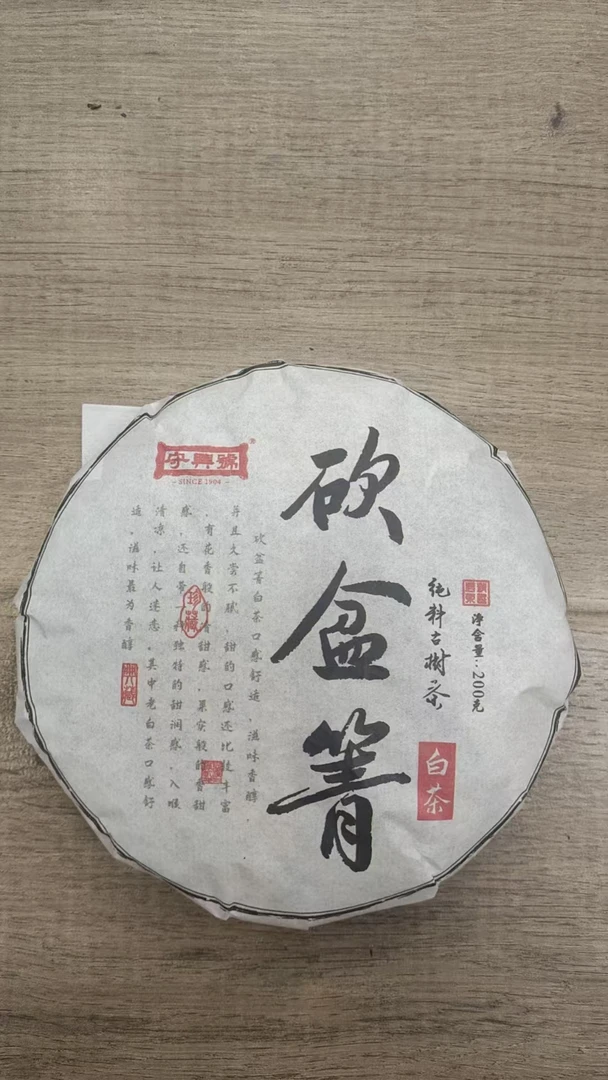 守興號
®
SINCE 1904
砍盆箐
純料古樹茶
净含量：200克
白茶
砍盆箐白茶口感舒适，滋味香醇
并且文雲不腻，甜的口感还比较丰富
，有花香般的香甜感，果实般的香甜
感，还自带一种独特的甜润感，入喉
清凉，让人迷恋，其中老白茶口感舒
适，滋味最为香醇
珍藏